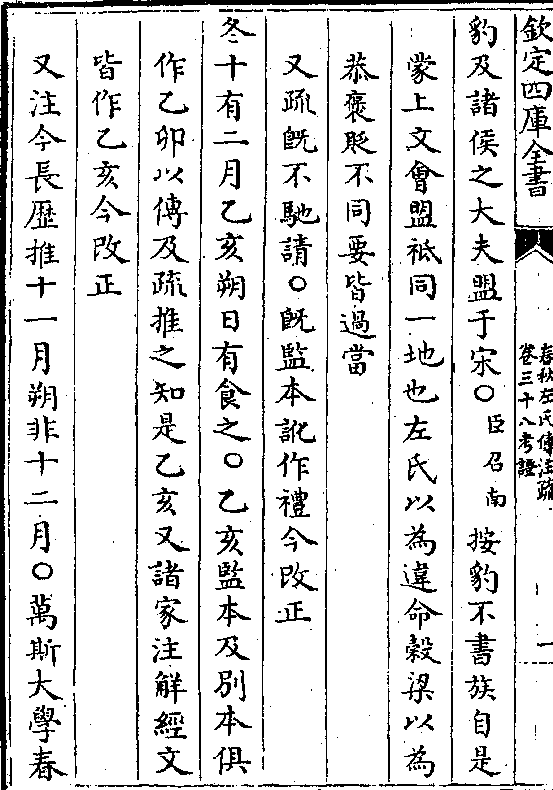 欽定四庫全書
春秋左氏傳注疏
卷三十八考證
一
豹及諸侯之大夫盟于宋〇臣召南按豹不書族自是
蒙上文會盟祇同一地也左氏以為違命穀梁以為
恭褒貶不同要皆過當
又疏既不馳請〇既監本訛作禮今改正
冬十有二月乙亥朔日有食之〇乙亥監本及別本俱
作乙卯以傳及疏推之知是乙亥又諸家注解經文
皆作乙亥今改正
又注今長歷推十一月朔非十二月〇萬斯大學春